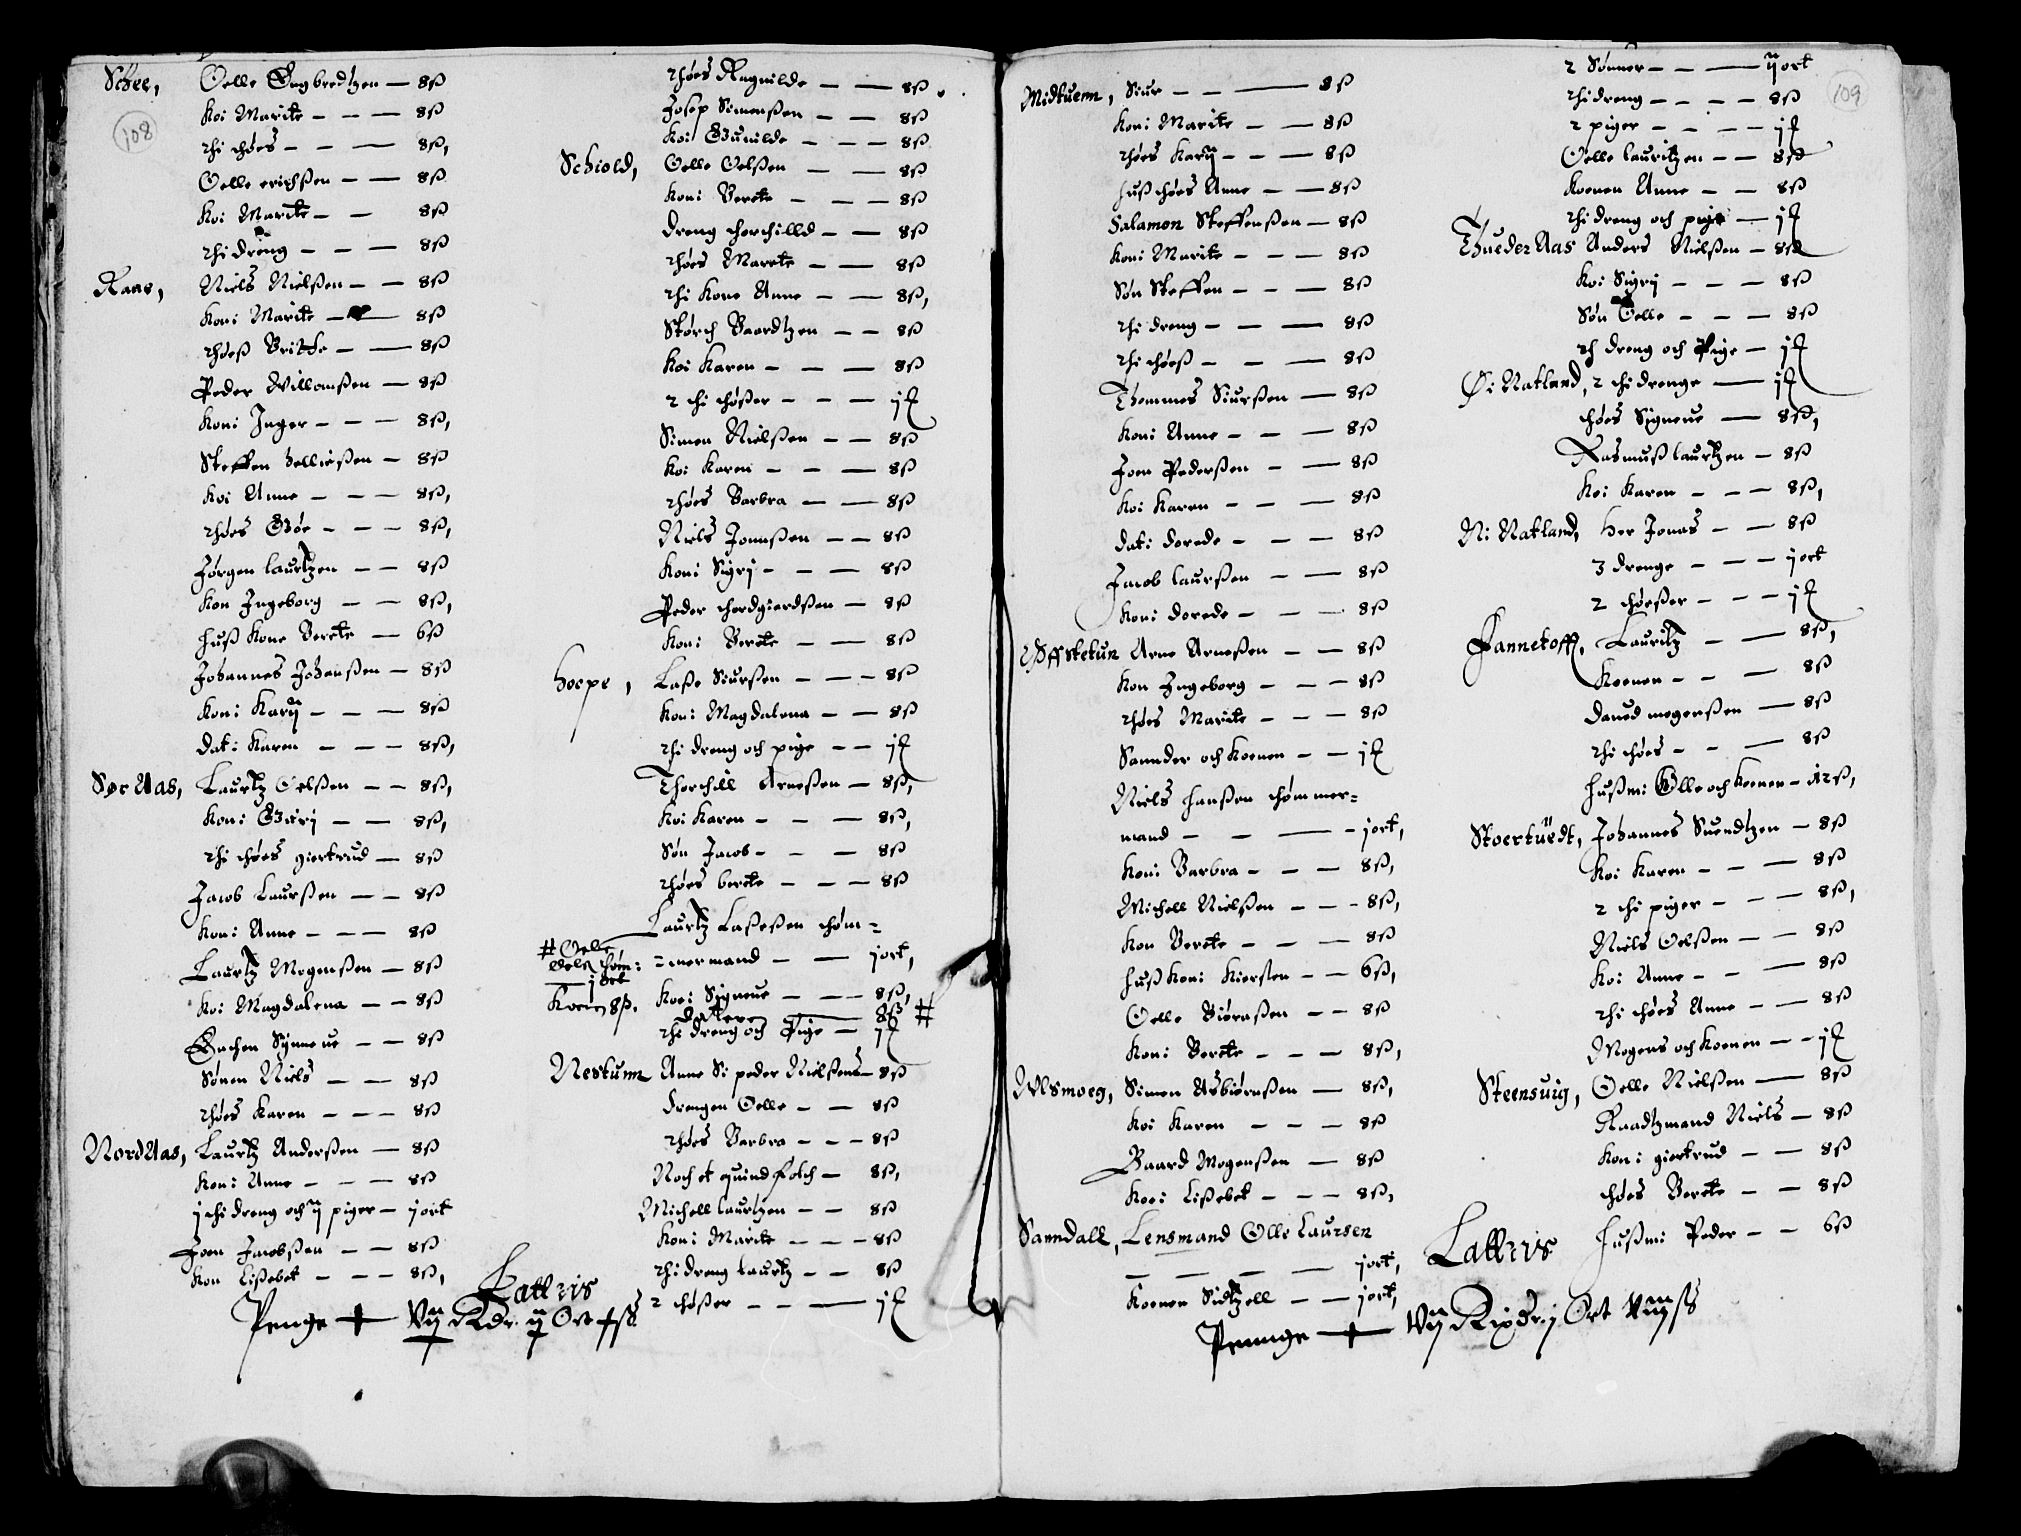 108
Schee, Oelle Engbredtzen — 8ß
Koi Marite — 8ß
thi thøes — 8ß,
Oelle erichßen — 8ß
Koi Marite — 8ß
thi dreng — 8ß
Raae, Niels Nielßen — 8ß
Koni Marite — 8ß
thøeß Britthe — 8ß
Peder Willomßen — 8ß
Koni Inger — 8ß,
Steffen — 8ß
Koi Anne — 8ß,
thøes — 8ß,
Jørgen laurtzen — 8ß
Kon Ingeborg — 8ß,
huß Kone Berete — 6ß
Johannes Johanßen — 8ß
Koni Karij — 8ß
dat: Karen — 8ß,
Sør Aas, Laurtz Oelßen — 8ß,
Kon: — 8ß,
thi thøes giertrud — 8ß
Jacob Laurßen — 8ß
Kon: Anne — 8ß
Laurtz Mogenßen — 8ß
Koi Magdalena — 8ß
Enchen Synneue — 8ß
Sønen Niels — 8ß
thøes Karen — 8ß
Nord Aas, Laurtz Anderßen — 8ß
Kon: Anne — 8ß
j thi dreng och ij piger — j ort
Joen Jacobßen — 8ß
Kon Lißebet — 8ß,
thøes Ragnilde — 8ß
Josep Simenßen — 8ß
Koi Gunilde — 8ß
Schiold, Oelle Oelßen — 8ß
Koni Berete — 8ß
dreng thorchilld — 8ß
thøes Marete — 8ß
thi Kone Anne — 8ß,
Størch Baardtzen — 8ß
Koi Karen — 8ß
2 thi thøßer — j
Simen Nielßen — 8ß
Koi Karen — 8ß
thøes Barbra — 8ß
Niels Jonnßen — 8ß
Koni Sigrj — 8ß
Peder thordgierdßen — 8ß
Kon: Berete — 8ß
Hoepe, Laße Siurßen — 8ß
Kon: Magdalena — 8ß
thi dreng och pige — j
Thorchill Arneßen — 8ß,
Koi Karen — 8ß,
Søn Jacob — 8ß
thøes berete — 8ß
Laurtz Laßeßen thøm=
=mermand — j ort,
# Oelle
Oels thøm:
— j ort
Koen 8ß.
Koe: Signeue — 8ß,
datter — 8ß #
thi dreng och Pige — j
Nestunn Anne Si peder Nielßens — 8ß
drengen Oelle — 8ß
thøes Barbra — 8ß
Noch et quindfolch — 8ß,
Michell laurtzen — 8ß
Kon: Marite — 8ß
thi dreng laurtz — 8ß
2 thøßer — j
Latteris
Penge — Vij Rdr ij Ort ß
109
Midtuenn, Siur — 8ß
Koni Marite — 8ß
thøes Karij — 8ß
huß thøes Anne — 8ß
Salamon Steffenßen — 8ß
Koni Marite — 8ß
Søn Steffen — 8ß
thi dreng — 8ß
thi thøeß — 8ß
Thommes Siurßen — 8ß
Koni Anne — 8ß
Joen Pederßen — 8ß
Koi Karen — 8ß
dat: dorede — 8ß
Jacob laurßen — 8ß
Koni dorede — 8ß
Arne Arneßen — 8ß
Kon Ingeborg — 8ß
thøes Marite — 8ß
Sannder och Koenen — j
Niels hanßen thømmer=
mand — j ort,
Koni Barbra — 8ß,
Michell Nielßen — 8ß,
Kon Berete — 8ß
huß Koni Kiersten — 6ß,
Oelle Biørnßen — 8ß
Kon: Berete — 8ß,
Simen Asbiørnßen — 8ß,
Koi Karen — 8ß
Baard Mogenßen — 8ß
Koei Lißebet — 8ß,
Sanndall, Lensmand Olle Laursen
— j ort,
Koenen Sidtzell — j ort,
2 Sønner — ij ort
thi dreng — 8ß
2 piger — j
Oelle lauritzen — 8ß
Koenen Anne — 8ß
thi dreng och pige — j
Thueder Aas Anders Nielßen — 8ß
Koi Sigrj — 8ß
Søn Oelle — 8ß
th dreng och Pige — j
Øi Natland, 2 thi drenge — j
thøes Signeue — 8ß,
Rasmuß laurtzen — 8ß
Koi Karen — 8ß,
Ni Natland, Her Jonas — 8ß
3 drenge — j ort
2 thøeßer — j
Fannetofft, Lauritz — 8ß,
Koenen — 8ß
Dauid mogenßen — 8ß
thi thøes — 8ß
hußm: Olle och Koenen — 12ß,
Stoertuedt, Johannes Suendtzen — 8ß
Koi Karen — 8ß
2 thi piger — 8ß,
Niels Oelßen — 8ß
Koi Anne — 8ß
thi thøes Anne — 8ß
Mogens och Koenen — j
Steensuig, Oelle Nielßen — 8ß
Raadtzmand Niels — 8ß
Kon: giertrud — 8ß
thøes Berete — 8ß
hußm: Peder — 6ß
Latteris
Pennge — Vij Rixdr j Ort Viijß